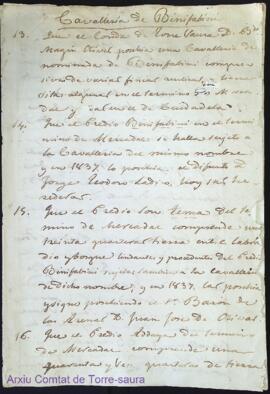 Cavalleria de Binifabini
13. Que el Conde de Torre Saura D. 
Magin Olivér poséia una Cavalleria de
nominada de Binifabini compre
siva de varias fincas rusticas y
sitas algunas en el termino de Merca
dal y de Ciudadela.
14. Que el Predio Binifabini en el ter
mino de Mercadal se halla sujeto a
la Cavalleria del mismo nombre
y en 1837 lo poseia el difunto D.
Jorge Teodoro Ladico, hoy sus he
rederos.
15. Que el Predio Son Tema del ter
mino de Mercadal comprende unas
treinta quarteras tierra entre labra
dio y bosque lindante y procedente del Predio
Binifabini sujetas tambien a la cavalleria
de dicho nombre; y en 1837 las poséia
y sigue posehiendo el Sr. Baron de
las Arenas D. Juan José de Olives
16. Que el Predio del termino
de Mercadal comprende unas
quarenta y quarteras de tierra
Arxiu Comtat de Torre-saura